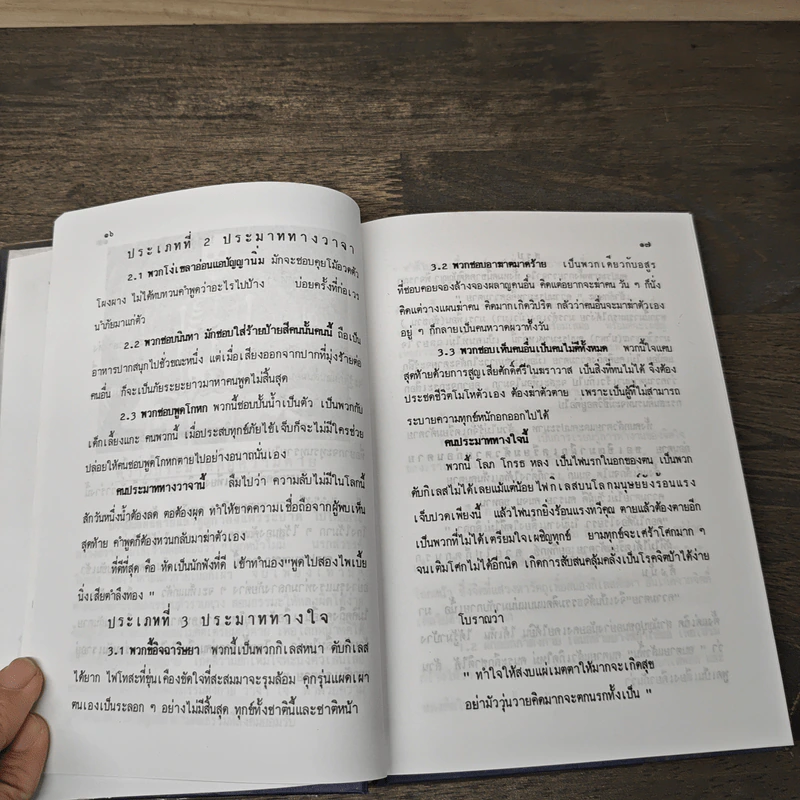 ๑๖
ประเภทที่ 2 ประมาททางวาจา
2.1 พวกโง่เขลาอ่อนแอปัญญานิ่ม มักจะชอบคุยโม้อวดตัว
โผงผาง ไม่ได้ทบทวนคำพูดว่าอะไรไปบ้าง บ่อยครั้งที่ก่อเวร
นำภัยมาแก่ตัว
2.2 พวกชอบนินทา มักชอบใส่ร้ายป้ายสีคนนั้นคนนี้ ถือเป็น
อาหารปากสนุกไปชั่วขณะหนึ่ง แต่เมื่อเสียงออกจากปากที่มุ่งร้ายต่อ
คนอื่น ก็จะเป็นภัยระยะยาวมาหาคนพูดไม่สิ้นสุด
2.3 พวกชอบพูดโกหก พวกนี้ชอบปั้นน้ำเป็นตัว เป็นพวกกับ
เด็กเลี้ยงแกะ คนพวกนี้ เมื่อประสบทุกข์ภัยไข้เจ็บก็จะไม่มีใครช่วย
ปล่อยให้คนชอบพูดโกหกตายไปอย่างอนาถนั่นเอง
คนประมาททางวาจานี้ ลืมไปว่า ความลับไม่มีในโลกนี้
สักวันหนึ่งน้ำต้องลด ตอต้องผุด ทำให้ขาดความเชื่อถือจากผู้พบเห็น
สุดท้าย คำพูดก็ต้องหวนกลับมาฆ่าตัวเอง
ที่ดีที่สุด คือ หัดเป็นนักฟังที่ดี เข้าทำนอง"พูดไปสองไพเบี้ย
นิ่งเสียตำลึงทอง "
ประเภทที่ 3 ประมาททางใจ
3.1 พวกขี้อิจฉาริษยา พวกนี้เป็นพวกกิเลสหนา ดับกิเลส
ได้ยาก ไฟโทสะที่ขุ่นเคืองขัดใจที่สะสมมาจะรุมล้อม คุกรุ่นแผดเผา
ตนเองเป็นระลอก ๆ อย่างไม่มีสิ้นสุด ทุกข์ทั้งชาตินี้และชาติหน้า
๑๗
3.2 พวกชอบอาฆาตมาดร้าย เป็นพวกเดียวกับอสูร
ที่ชอบคอยจองล้างจองผลาญคนอื่น คิดแต่อยากจะฆ่าคน วัน ๆ ก็นั่ง
คิดแต่วางแผนฆ่าคน คิดมากเกิดวิปริต กลัวว่าคนอื่นจะมาฆ่าตัวเอง
อยู่ ๆ ก็กลายเป็นคนหวาดผวาทั้งวัน
3.3 พวกชอบเห็นคนอื่นเป็นคนไม่ดีทั้งหมด พวกนี้ใจแคบ
สุดท้ายด้วยการสูญเสียศักดิ์ศรีในฆราวาส เป็นสิ่งที่ทนไม่ได้ จึงต้อง
ประชดชีวิตโมโหตัวเอง ต้องฆ่าตัวตาย เพราะเป็นผู้ที่ไม่สามารถ
ระบายความทุกข์หนักอกออกไปได้
คนประมาททางใจนี้
พวกนี้ โลภ โกรธ หลง เป็นไฟนรกในอกของตน เป็นพวก
ดับกิเลสไม่ได้เลยแม้แต่น้อย ไฟกิเลสบนโลกมนุษย์ยังร้อนแรง
เจ็บปวดเพียงนี้ แล้วไฟนรกยิ่งร้อนแรงทวีคูณ ตายแล้วต้องตายอีก
เป็นพวกที่ไม่ได้เตรียมใจเผชิญทุกข์ ยามทุกข์จะเศร้าโศกมาก ๆ
จนเติมโศกไม่ได้อีกนิด เกิดการสับสนคลุ้มคลั่งเป็นโรคจิตบ้าได้ง่าย
โบราณว่า
" ทำใจให้สงบแผ่เมตตาให้มากจะเกิดสุข
อย่ามัววุ่นวายคิดมากจะตกนรกทั้งเป็น "